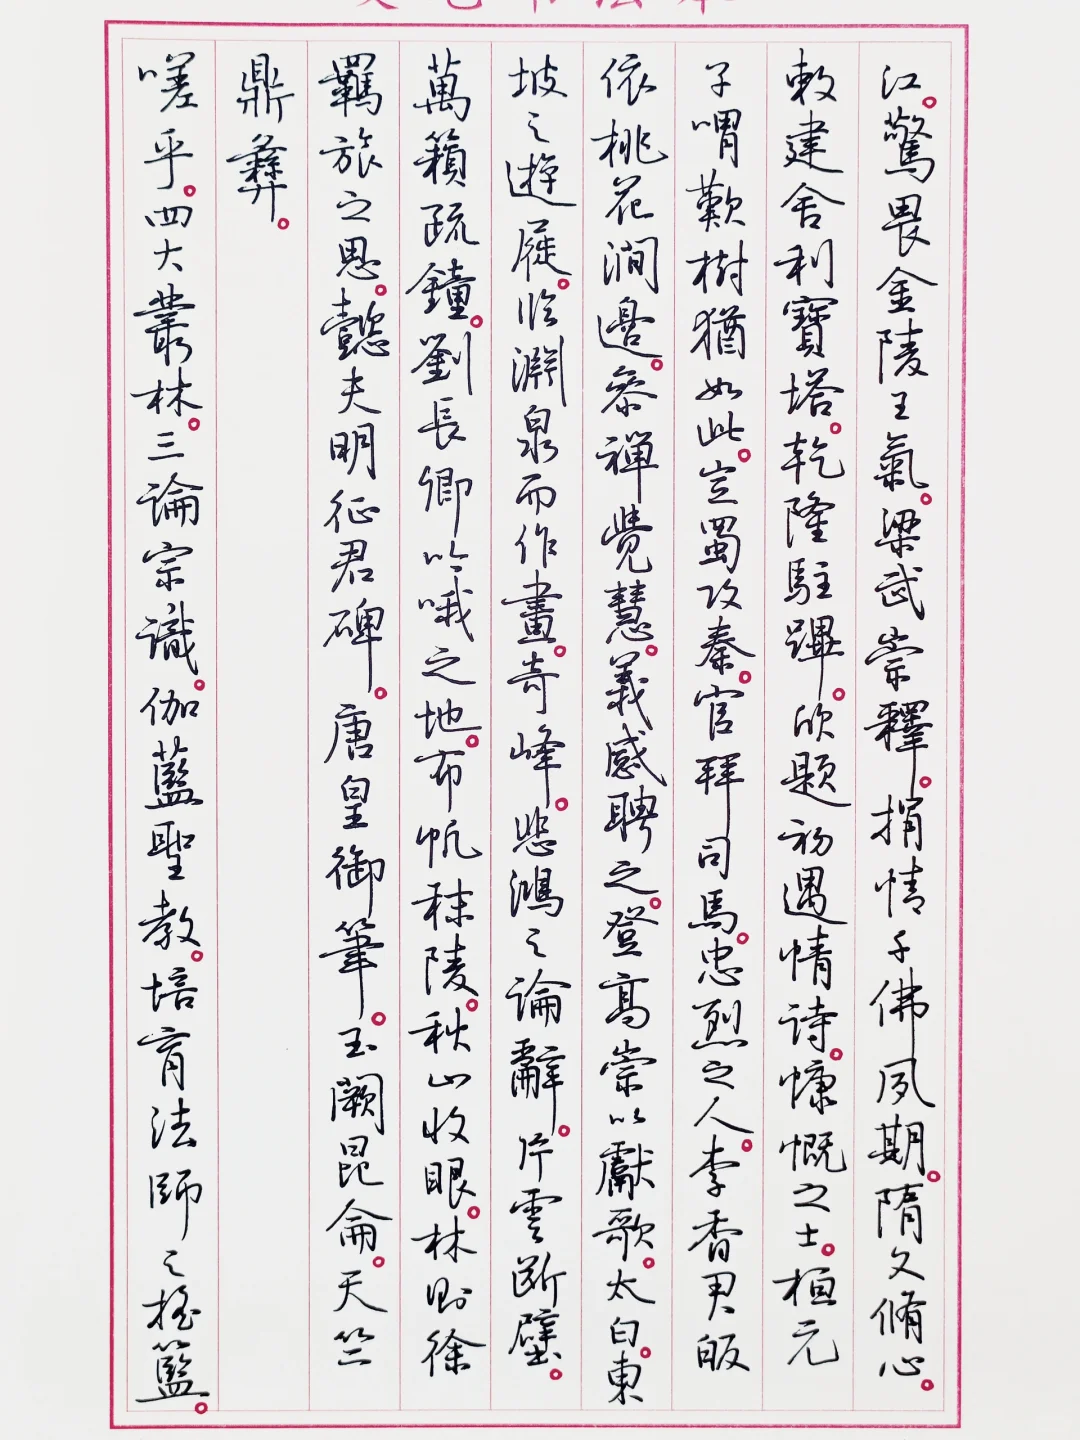 江。驚畏金陵王氣。梁武崇釋。捐情千佛夙期。隋文脩心。
敕建舍利寶塔。乾隆駐蹕。欣題初遇情詩。慷慨之士。桓元
子喟歎樹猶如此。豈蜀攻秦。官拜司馬。忠烈之人。李香君皈
依桃花澗邊。參禪覺慧。義感聘之。登高崇以獻歌。太白。東
坡之遊屐。臨淵泉而作畫。奇峰。悲鴻之論辭。片雲斷壁。
萬籟疏鐘。劉長卿吟哦之地。布帆秣陵。秋山收眼。林則徐
羈旅之思。懿夫明征君碑。唐皇御筆。玉闕昆侖。天竺
鼎彝。
嗟乎。四大叢林。三論宗識。伽藍聖教。培育法師之搖籃。